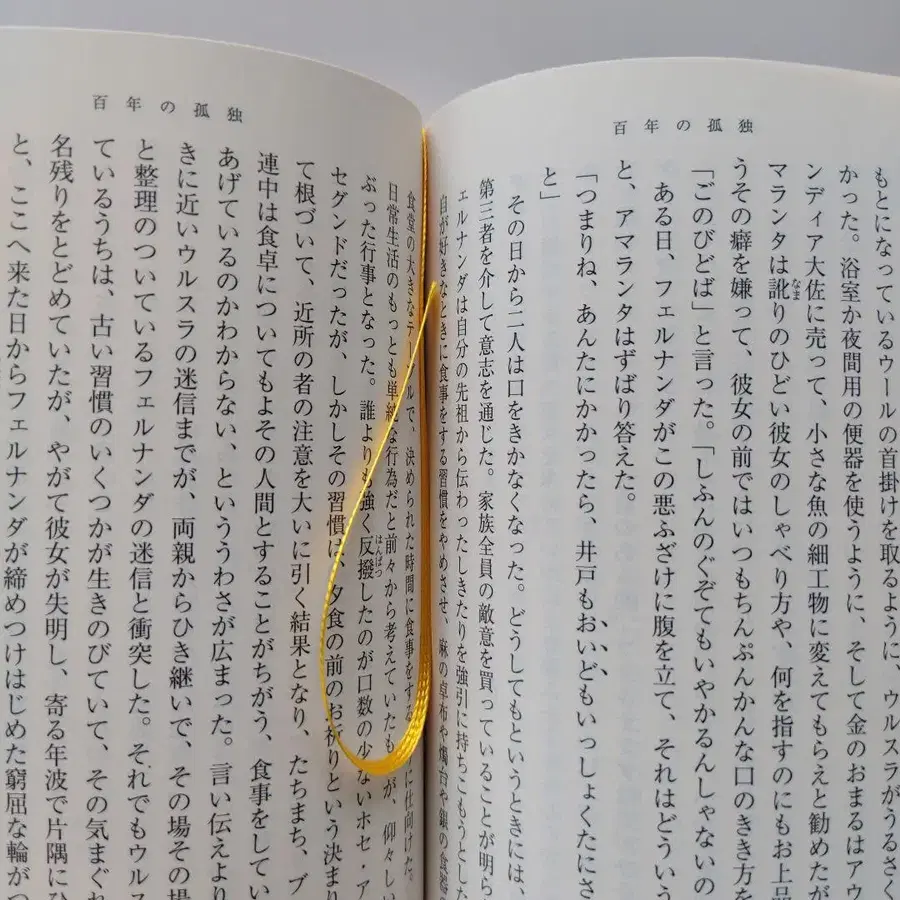 百年の孤独
もとになっているウールの首掛けを取るように、ウルスラがうるさく
かった。浴室か夜間用の便器を使うように、そして金のおまるはアウ
ンディア大佐に売って、小さな魚の細工物に変えてもらえと勧めたが
マランタは訛りのひどい彼女のしゃべり方や、何を指すのにもお上品
うその癖を嫌って、彼女の前ではいつもちんぷんかんな口のきき方を
「ごのびどば」と言った。「しふんのぐぞてもいやかるんしゃないの
ある日、フェルナンダがこの悪ふざけに腹を立て、それはどういう
と、アマランタはずばり答えた。
「つまりね、あんたにかかったら、井戸もおいどもいっしょくたにさ
と」
その日から二人は口をきかなくなった。どうしてもというときには、
第三者を介して意志を通じた。家族全員の敵意を買っていることが明ら
ェルナンダは自分の先祖から伝わったしきたりを強引に持ちこもうとした
自が好きなときに食事をする習慣をやめさせ、麻の卓布や燭台や銀の食器
百年の孤独
食堂の大きなテーブルで、決められた時間に食事をする に仕向けた。
日常生活のもっとも単純な行為だと前々から考えていたも が、仰々しい
ぶった行事となった。誰よりも強く反撥したのが口数の少ないホセ・ア
セグンドだったが、しかしその習慣は、夕食の前のお祈りという決まり
て根づいて、近所の者の注意を大いに引く結果となり、たちまち、ブ
連中は食卓についてもよその人間とすることがちがう、食事をしてい
あげているのかわからない、といううわさが広まった。言い伝えより
きに近いウルスラの迷信までが、両親からひき継いで、その場その場
と整理のついているフェルナンダの迷信と衝突した。それでもウルス
ているうちは、古い習慣のいくつかが生きのびていて、その気まぐれ
名残りをとどめていたが、やがて彼女が失明し、寄る年波で片隅にひ
と、ここへ来た日からフェルナンダが締めつけはじめた窮屈な輪が